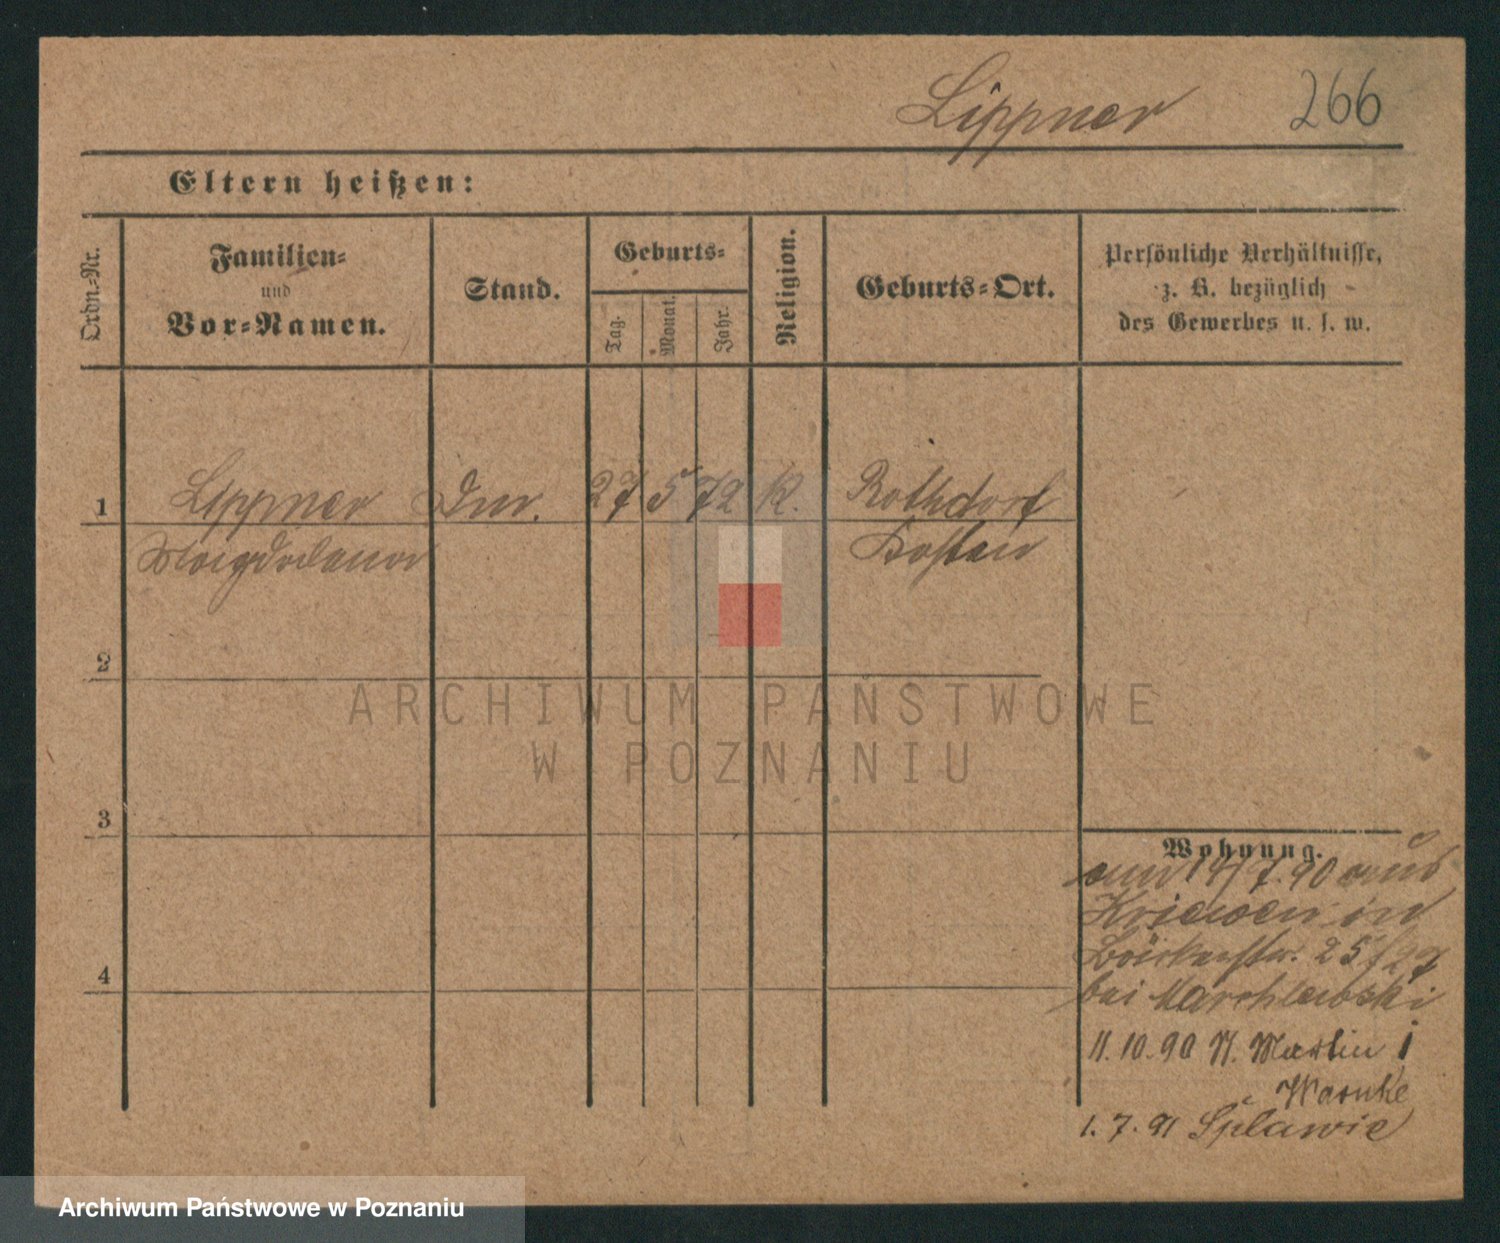 Lippner 266
Eltern heißen:
Ordn.-Nr.
Familien-
und
Vor-Namen.
Stand.
Geburts-
Tag.
Monat.
Jahr.
Religion.
Geburts-Ort.
Persönliche Verhältnisse,
z. B. bezüglich
des Gewerbes u. s. w.
1 Lippner 27 5 72 K. Rothdorf
Magdalena Kosten
2
3
4
Wohnung.
14/7.90 aus
Kriewen in
Bäckerstr. 25/27
bei Marchlewski
11.10.90 St. Martin 1
Warnke
1.7.91 Splawie
ARCHIWUM PAŃSTWOWE
W POZNANIU
Archiwum Państwowe w Poznaniu